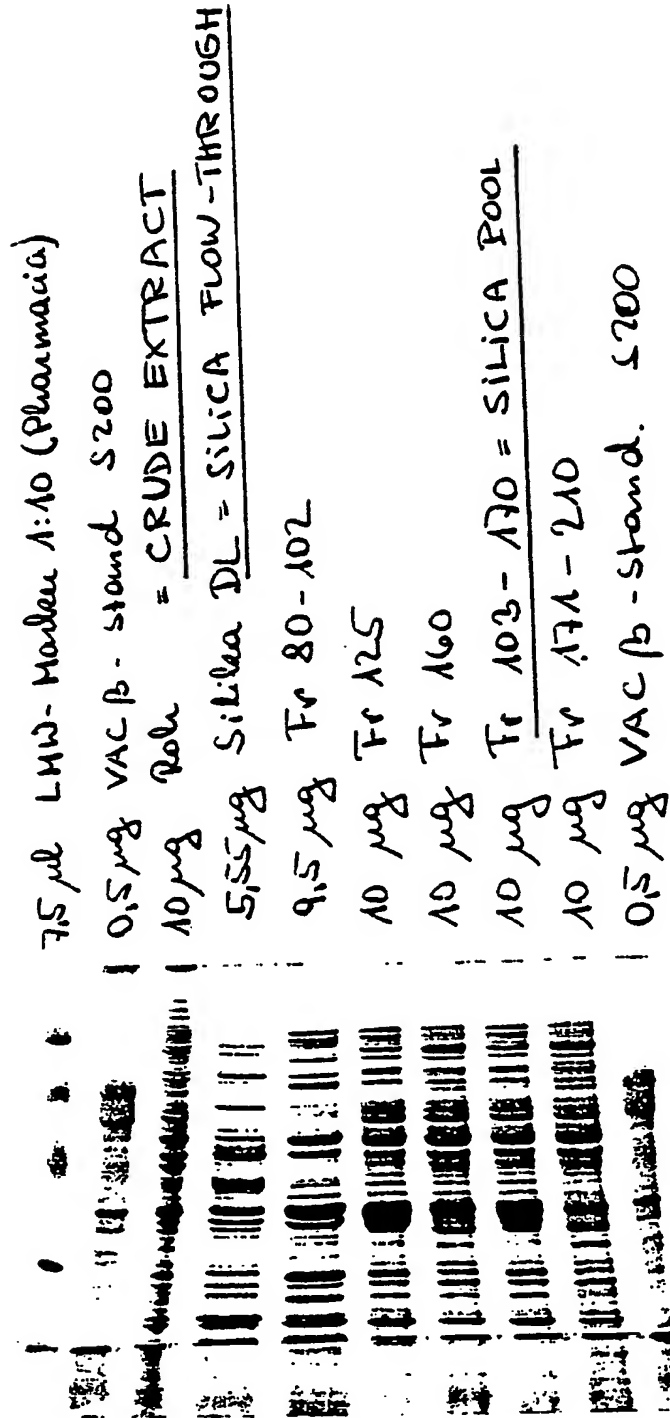 7,5 µl LMW-Marker 1:10 (Pharmacia)
0,5 µg VAC β - stand S200
10 µg Roh = CRUDE EXTRACT
5,55 µg Silika DL = SILICA FLOW-THROUGH
9,5 µg Fr 80-102
10 µg Fr 125
10 µg Fr 160
10 µg Fr 103-170 = SILICA POOL
10 µg Fr 171-210
0,5 µg VAC β - stand. S200